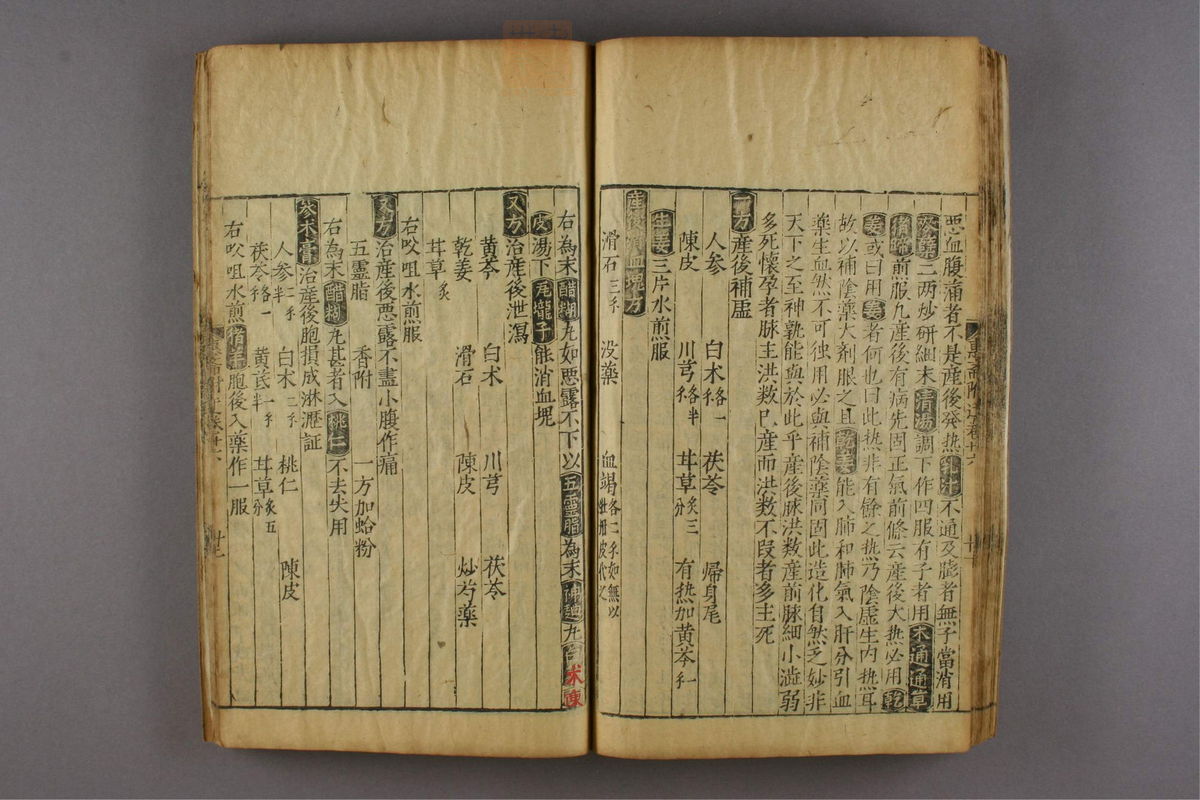 惡血腹痛者不是產後發热乳汁不通及膨者無子當消用
麥蘖二两炒研細末清湯調下作四服有子者用木通通草
猪蹄煎服九產後有病先固正氣前條云產後大热必用乾
姜或曰用姜者何也曰此热非有餘之热乃陰虚生内热耳
故以補陰藥大剤服之且乾姜能入肺和肺氣入肝分引血
藥生血然不可独用必與補陰藥同固此造化自然之妙非
天下之至神孰能與於此乎産後脉洪数産前脉細小澁弱
多死懷孕者脉主洪数已産而洪数不改者多主死
一方産後補虚
人参 白术各一 茯苓 帰身尾
陳皮 川芎各半 甘草炙三分 有热加黄芩一
生姜三片水煎服
産後消血塊方
滑石三 没藥 血竭各二 如無以牡丹皮代之
右為末醋糊丸如惡露不下以五靈脂為末神麯丸白术陳
皮湯下瓦壠子能消血塊
又方治産後泄瀉
黄芩 白术 川芎 茯苓
乾姜 滑石 陳皮 炒芍藥
甘草炙
右㕮咀水煎服
又方治産後惡露不盡小腹作痛
五靈脂 香附 一方加蛤粉
右為末醋糊丸甚者入桃仁不去尖用
参术膏治産後胞損成淋瀝証
人参二半 白术二 桃仁 陳皮
茯苓各一 黄芪一半 甘草炙五分
右㕮咀水煎猪羊胞後入藥作一服